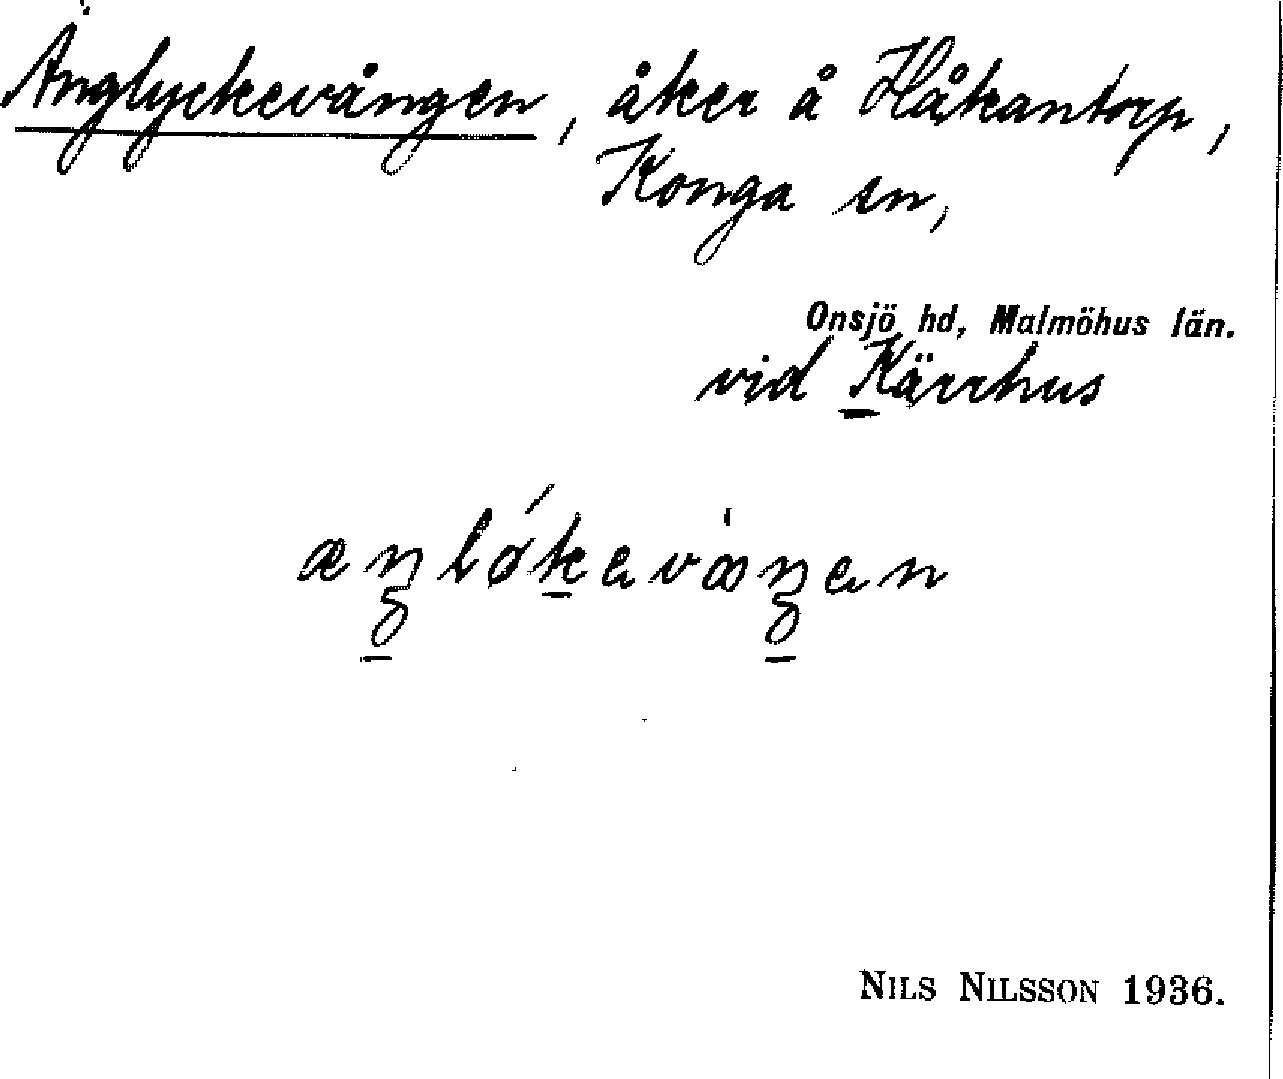 Änglyckevången, åker å Håkantorp,
Konga sn,
Onsjö hd, Malmöhus län.
vid Kärrhus
æŋløkevaŋen
NILS NILSSON 1936.